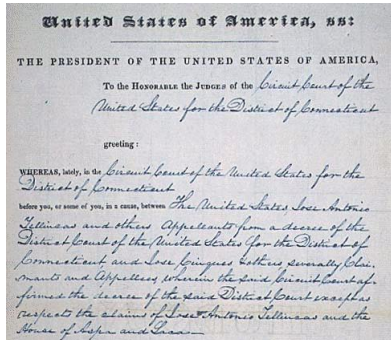 United States of America, ss:
THE PRESIDENT OF THE UNITED STATES OF AMERICA,
To the HONORABLE the JUDGES of the Circuit Court of the
United States for the District of Connecticut
greeting:
WHEREAS, lately, in the Circuit Court of the United States for the
District of Connecticut
before you, or some of you, in a cause, between The United States, Jose Antonio
Tellincas and others Appellants from a decree of the
District Court of the United States for the District of
Connecticut and Jose Cinques & others severally Clai-
mants and Appellees, wherein the said Circuit Court af-
firmed the decree of the said District Court except as
respects the claims of Jose Antonio Tellincas and the
House of Aspa and Laca